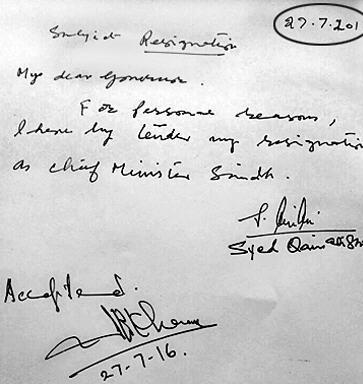 27.7.201
Subject Resignation
My dear Governor.
For personal reasons,
I here by tender my resignation
as chief Minister Sindh.
Syed Qaim Ali Sh
Accepted.
27-7-16.